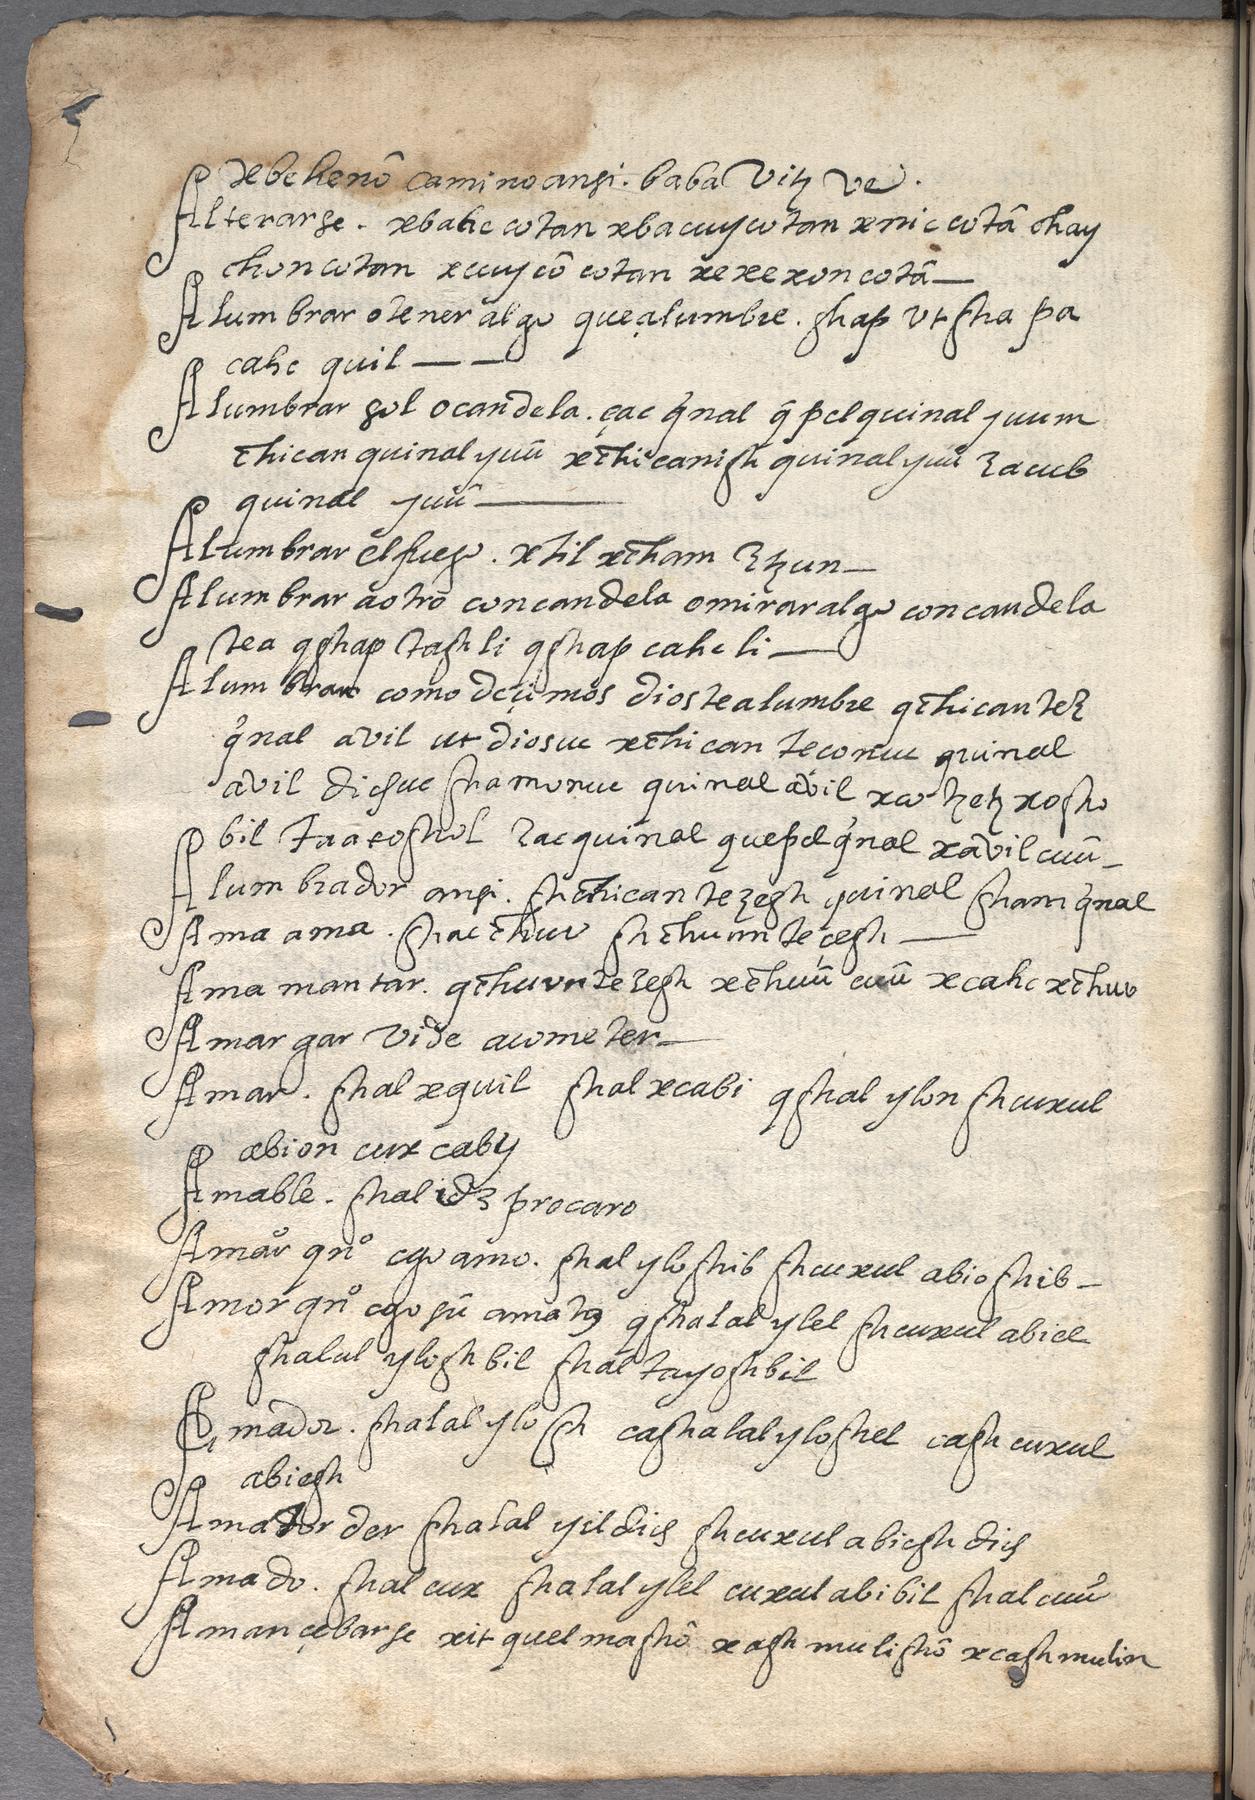 xebehenô camino ansi. baba vitz ve.
Alterarse. xbahc cotan xbacuy cotan xnic cotâ chay
chon cotan xcuy cô cotan xexexon cotâ—
Alumbrar o tener algo que alumbre. ghap vt gha pa
cahc quil — —
Alumbrar sol o candela. çac q̉nal q̃ pel quinal yuum
t̄hican quinal yuũ xt̄hicanigh quinal yuũ zacub
quinal yuũ —
Alumbrar el fuego. xtil xt̄ham ztzun—
Alumbrar a otro con candela o mirar algo con candela
tea qghap tagh li qghap cahc li —
Alumbrar como deçimos dios te alumbre qt̄hican tez
q̉nal avil ut diosuc xt̄hican teconuc quinal
avil diosuc ghamonuc quinal avil xco tzetz xogho
bil taatoghol zac quinal quepel q̉nal xavil cuũ—
Alumbrador ansi. ght̄hican tezegh quinal gham q̉nal
Ama ama. ghac t̄huv gh t̄huun teçegh —
Amamantar. qt̄huvntezegh xt̄huũ cuũ xcahc xt̄huv
Amargar vide acometer—
Amar. ghal xquil ghal xcabi qghal ylon ghcuxul
abion cux caby
Amable. ghal idз procaro
Amar qn° ego amo. ghal yloghib ghcuxul abioghib—
Amor qn° ego sũ amatꝯ qghalal ylel ghcuxul abiel
ghalul yloghbil ghal tayoghbil
Amador. ghalal ylogh caghalal yloghel cagh cuxul
abiegh
Amador der ghalal yil dios ghcuxul abiegh dios
Amado. ghal cux ghalal ylel cuxul abibil ghal cuũ
Amançebarse xit quel maghô xagh mulighô xcagh mulin